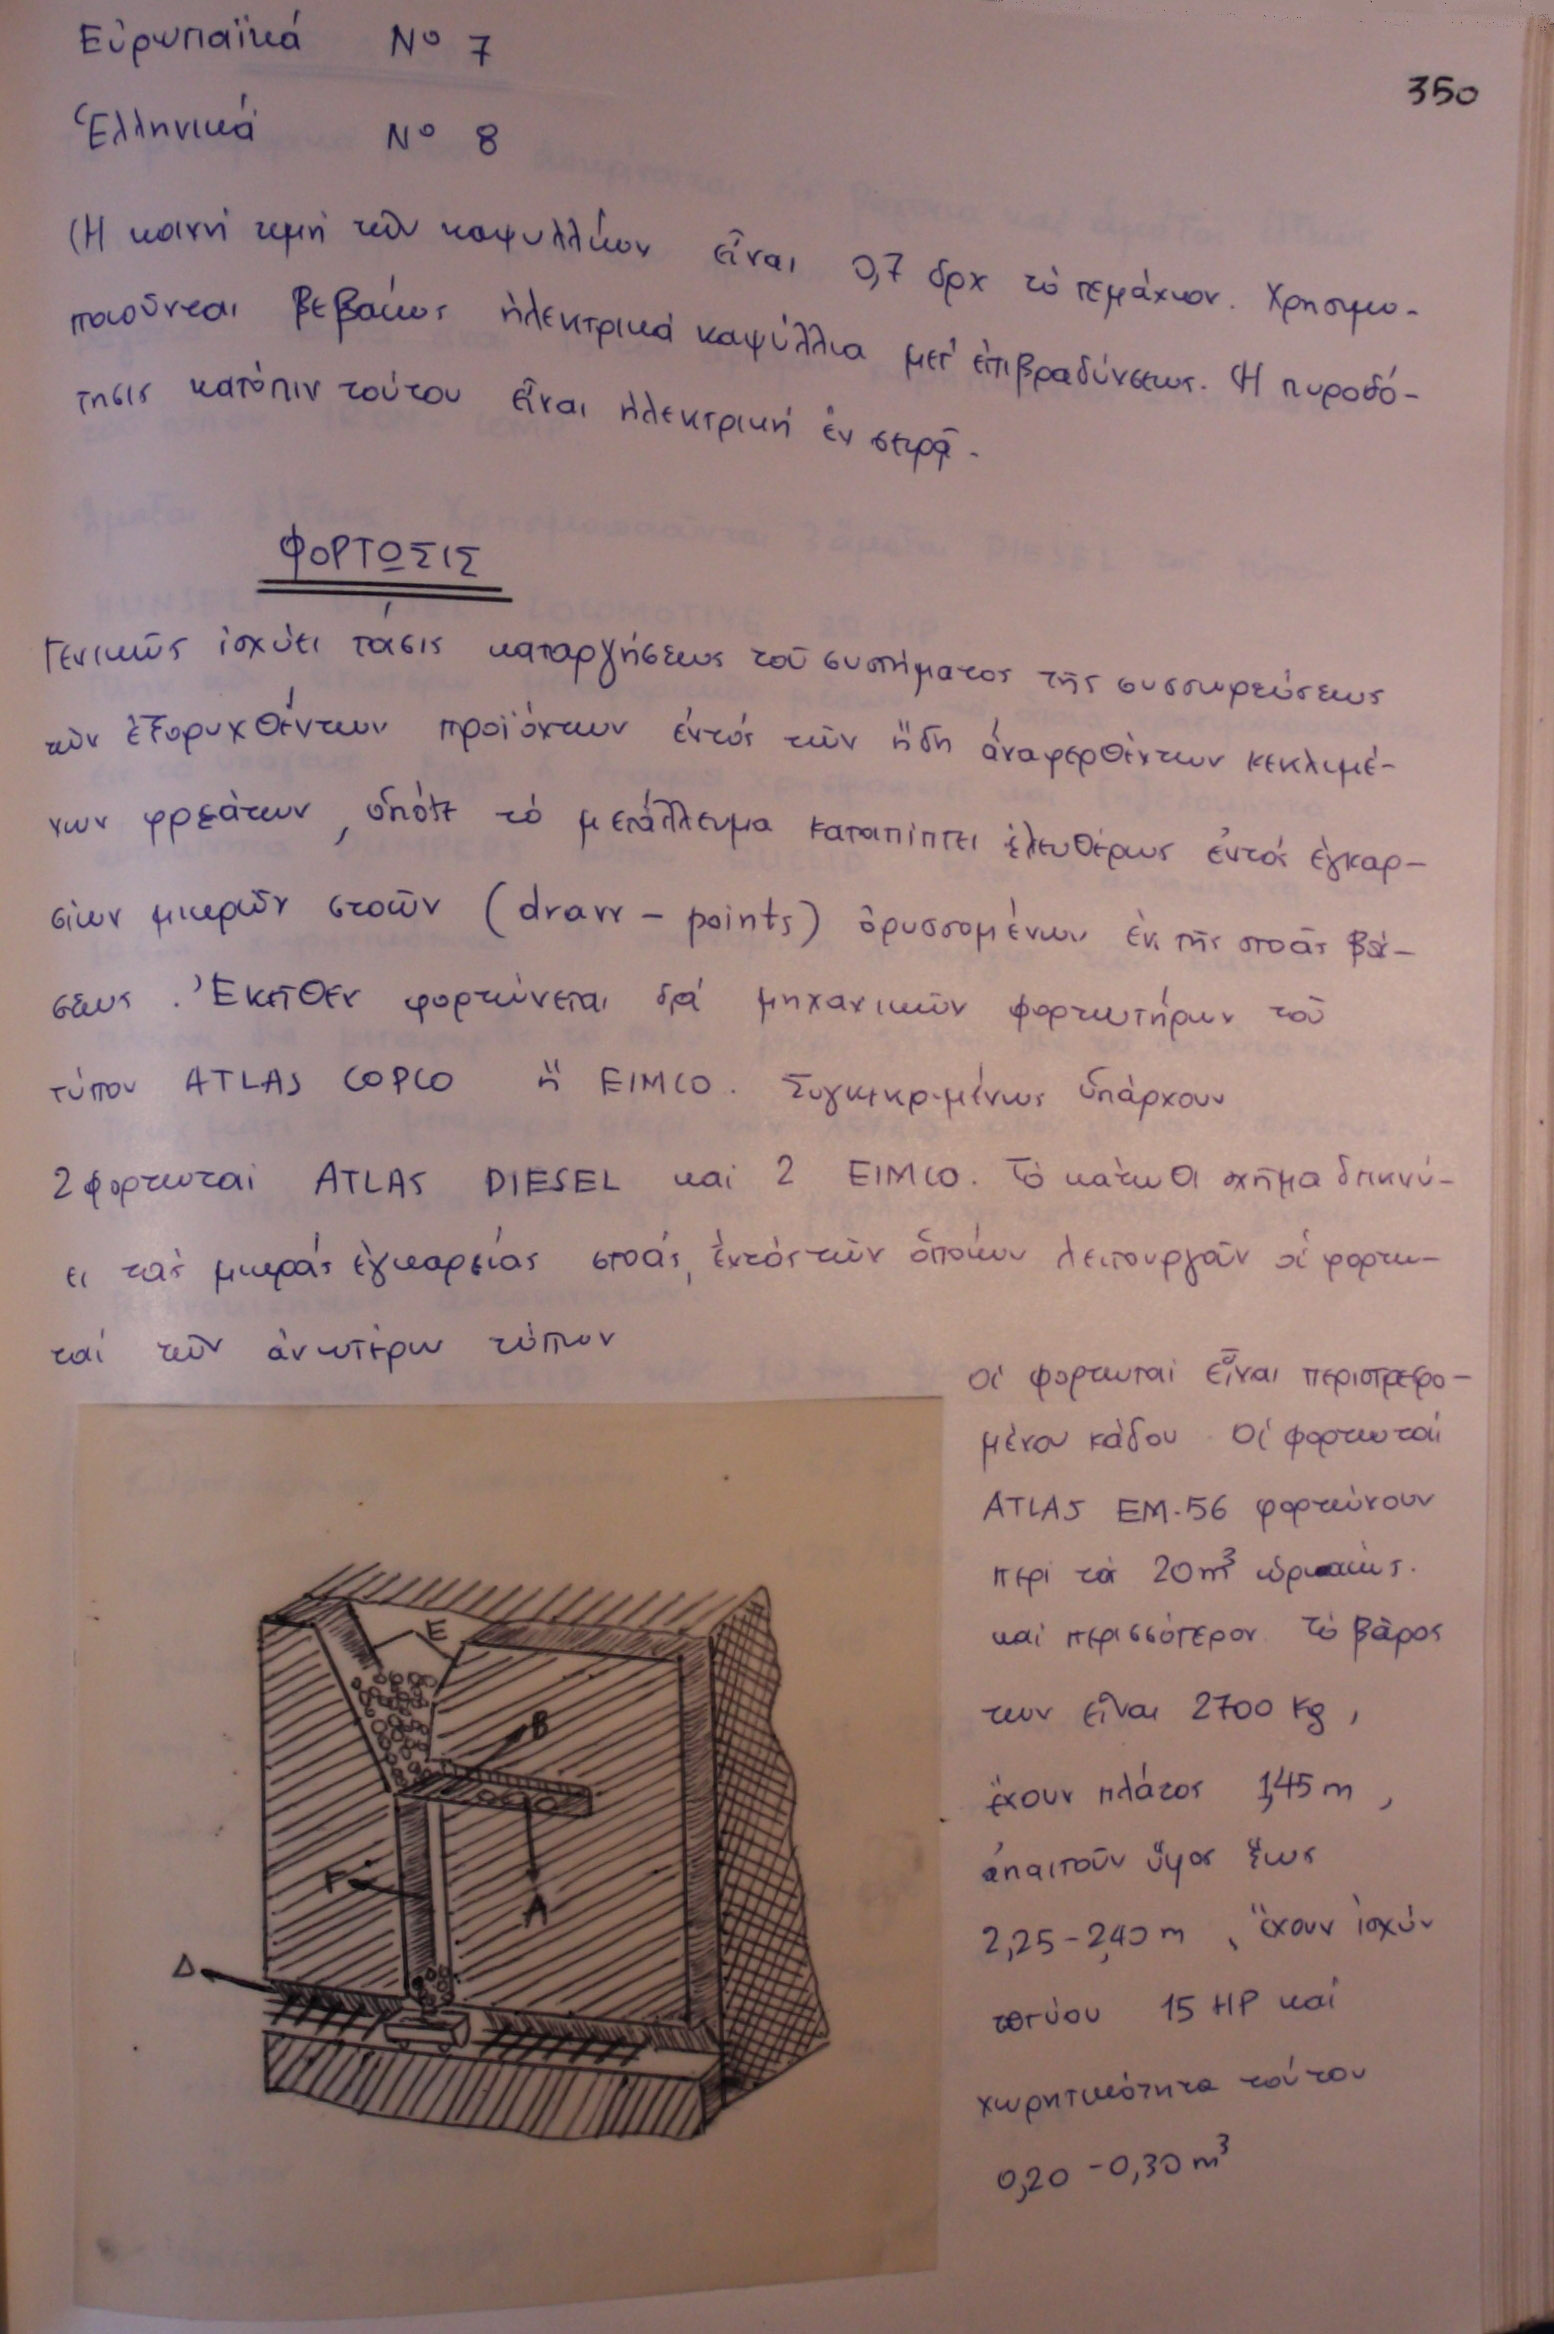 Εὐρωπαϊκά Nº 7
350
Ἑλληνικά Nº 8
Ἡ κοινή τιμή τῶν καψυλλίων εἶναι 0,7 δρχ τό τεμάχιον. Χρησιμο-
ποιοῦνται βεβαίως ἠλεκτρικά καψύλλια μετ' ἐπιβραδύνσεως. Ἡ πυροδό-
τησις κατόπιν τούτου εἶναι ἠλεκτρική ἐν σειρᾷ.
ΦΟΡΤΩΣΙΣ
Γενικῶς ἰσχύει τάσις καταργήσεως τοῦ συστήματος τῆς συσσωρεύσεως
τῶν ἐξορυχθέντων προϊόντων ἐντός τῶν ἤδη ἀναφερθέντων κεκλιμέ-
νων φρεάτων, ὁπότε τό μετάλλευμα καταπίπτει ἐλευθέρως ἐντός ἐγκαρ-
σίων μικρῶν στοῶν (draw-points) ὀρυσσομένων ἐκ τῆς στοᾶς βά-
σεως. Ἐκεῖθεν φορτώνεται διά μηχανικῶν φορτωτήρων τοῦ
τύπου ATLAS COPCO ἤ EIMCO. Συγκεκριμένως ὑπάρχουν
2 φορτωταί ATLAS DIESEL καί 2 EIMCO. Τό κάτωθι σχῆμα δεικνύ-
ει τάς μικράς ἐγκαρσίας στοάς, ἐντός τῶν ὁποίων λειτουργοῦν οἱ φορτω-
ταί τῶν ἀνωτέρω τύπων
Οἱ φορτωταί εἶναι περιστρεφο-
μένου κάδου. Οἱ φορτωταί
ATLAS EM-56 φορτώνουν
περί τά 20 m³ ὡριαίως.
καί περισσότερον. Τό βάρος
των εἶναι 2700 Kg,
ἔχουν πλάτος 1,45 m,
ἀπαιτοῦν ὕψος ἕως
2,25-2,40 m, ἔχουν ἰσχύν
15 HP καί
χωρητικότητα τούτου
0,20-0,30 m³
E
B
Γ
A
Δ